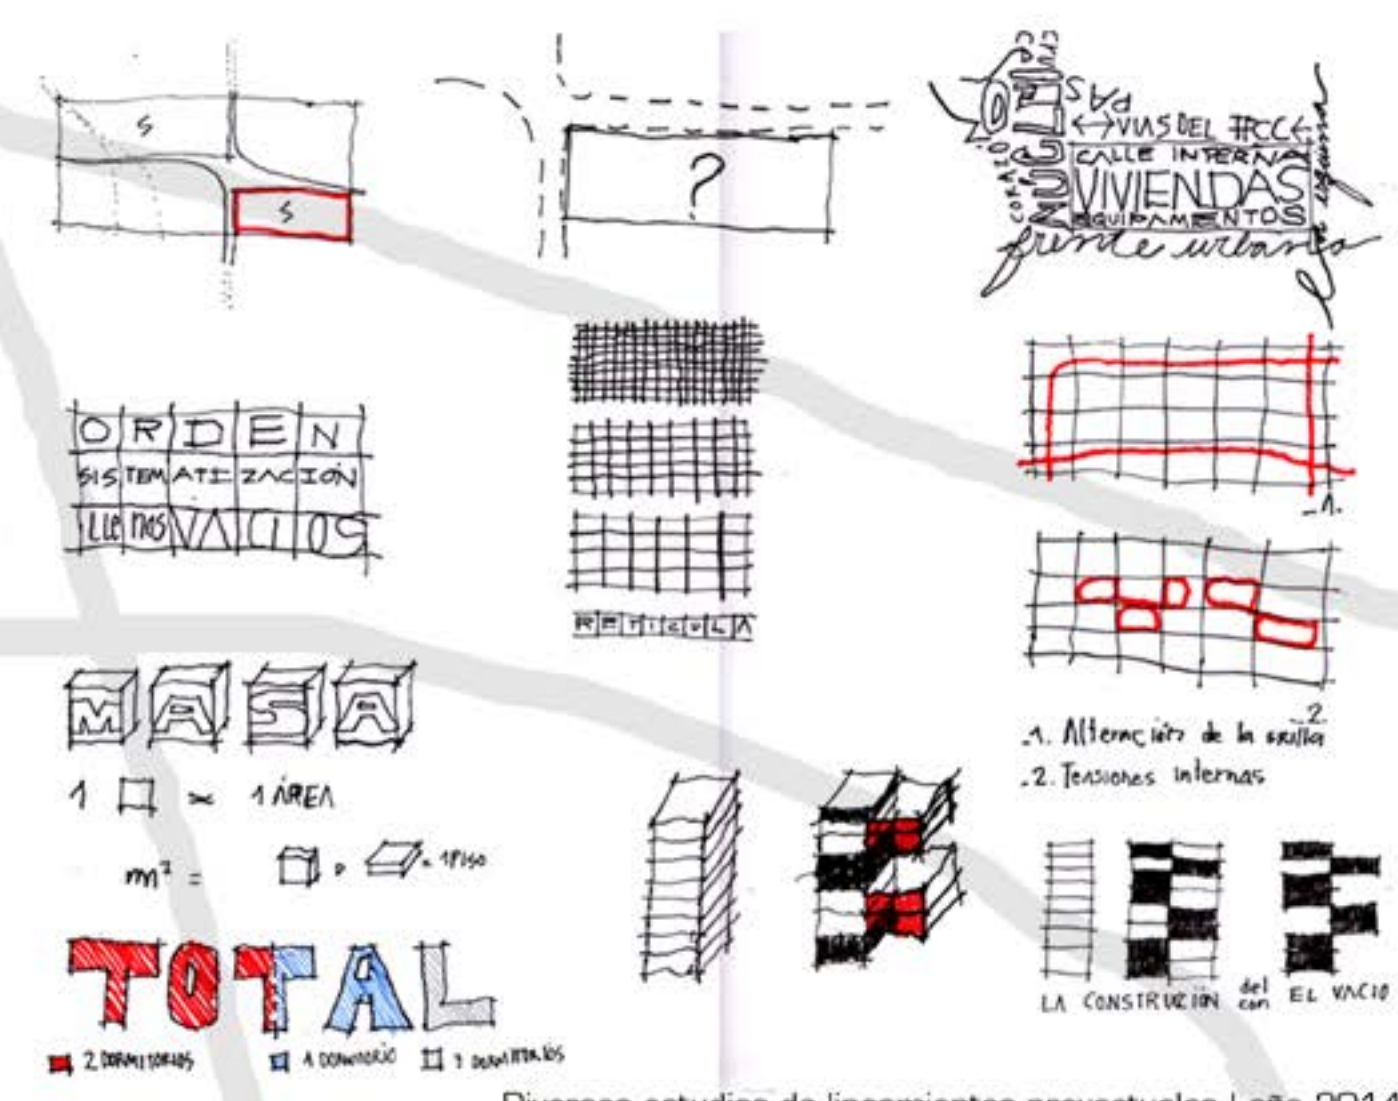 S
S
?
NÚCLEO
CORAZÓN
PAS
VIAS DEL FFCC
CALLE INTERNA
VIVIENDAS
EQUIPAMENTOS
frente urbano
ORDEN
SISTEMATIZACIÓN
LLenos VACIOS
RETICULA
.1.
.2.
.1. Alteración de la grilla
.2. Tensiones internas
MASA
1 = 1 ÁREA
m² = o = 1 PISO
TOTAL
2 DORMITORIOS 1 DORMITORIO 3 DORMITORIOS
LA CONSTRUCIÓN del con EL VACIO
Diversos estudios de lineamientos proyectuales | año 2014